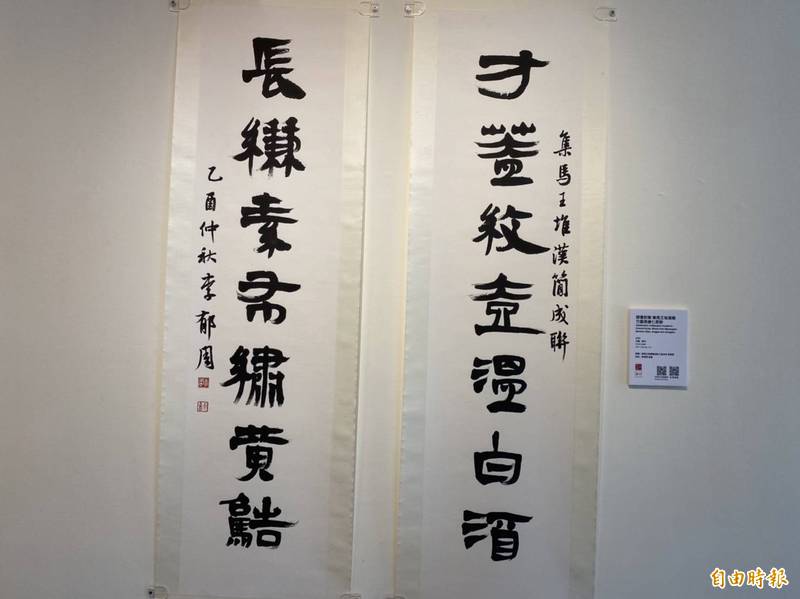 方蓋紋壺溫白酒
集馬王堆漢簡成聯
長縑素布繡黃鵠
乙酉仲秋李郁周
自由時報